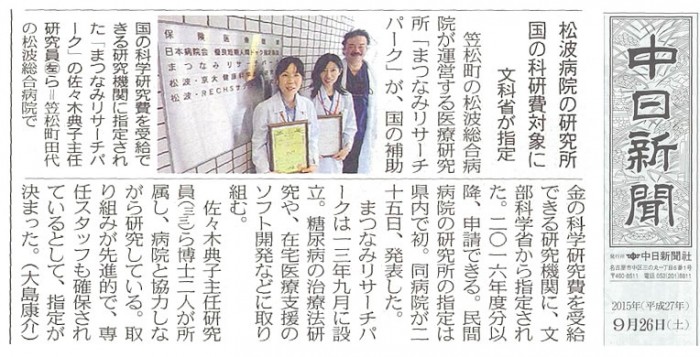 中日新聞
発行所 中日新聞社
2015年(平成27年)
9月26日(土)
松波病院の研究所
国の科研費対象に
文科省が指定
笠松町の松波総合病
院が運営する医療研究
所「まつなみリサーチ
パーク」が、国の補助
金の科学研究費を受給
できる研究機関に、文
部科学省から指定され
た。二〇一六年度分以
降、申請できる。民間
病院の研究所の指定は
県内で初。同病院が二
十五日、発表した。
まつなみリサーチパ
ークは一三年九月に設
立。糖尿病の治療法研
究や、在宅医療支援の
ソフト開発などに取り
組む。
佐々木典子主任研究
員(三三)ら博士二人が所
属し、病院と協力しな
がら研究している。取
り組みが先進的で、専
任スタッフも確保され
ているとして、指定が
決まった。(大島康介)
保険医療機関
日本病院会 優良短期人間ドック
まつなみリサーチ
松波・京大健康科学
松波・RECHS
国の科学研究費を受給で
きる研究機関に指定され
た「まつなみリサーチパ
ーク」の佐々木典子主任
研究員㊧ら=笠松町田代
の松波総合病院で